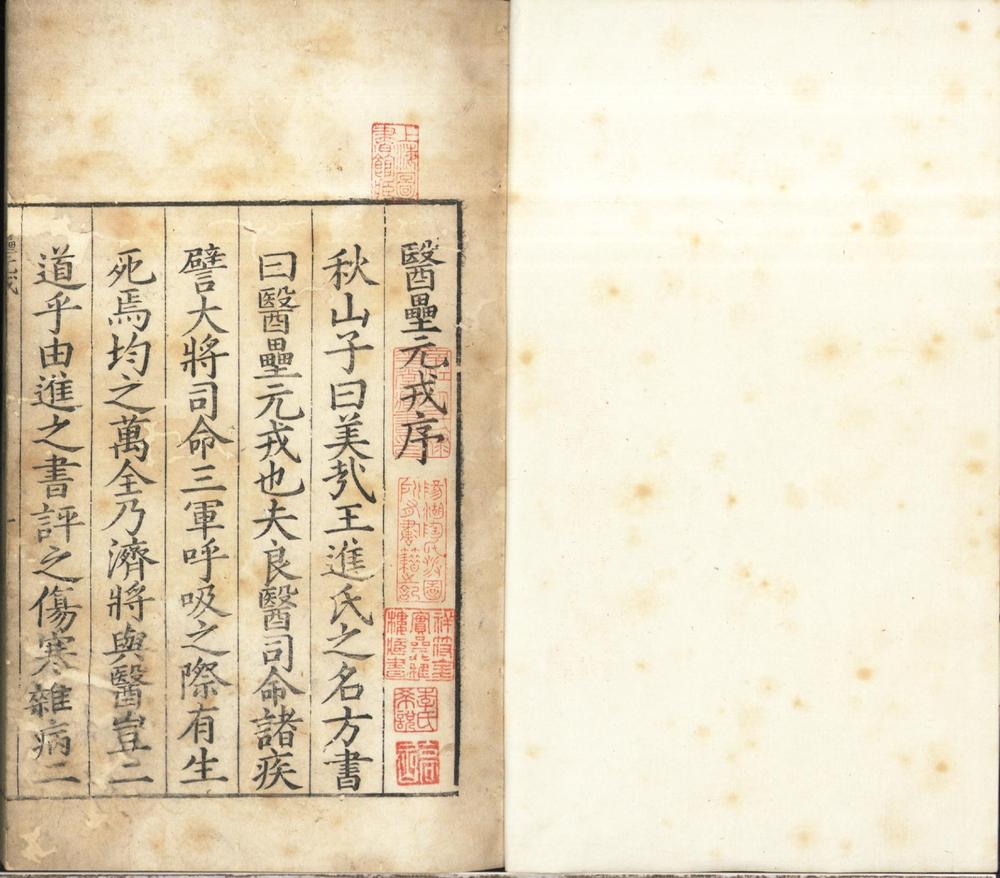 醫壘元戎序
秋山子曰美哉王進氏之名方書
曰醫壘元戎也夫良醫司命諸疾
譬大將司命三軍呼吸之際有生
死焉均之萬全乃濟將與醫豈二
道乎由進之書評之傷寒雜病二
上海圖
書館藏